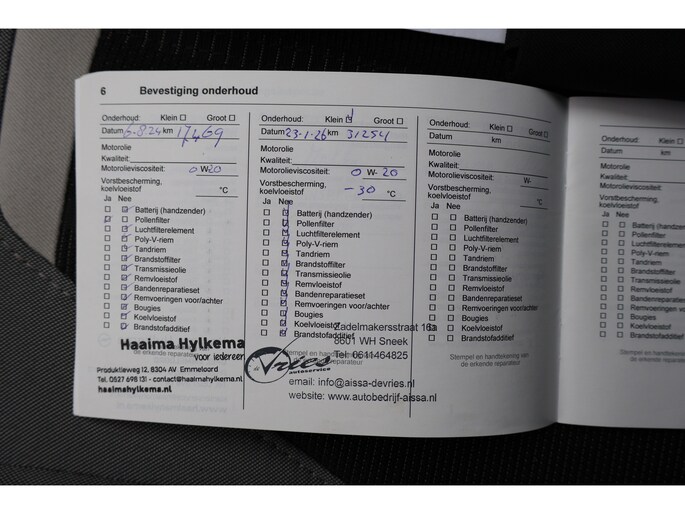 6 Bevestiging onderhoud
Onderhoud: Klein ☐ Groot ☐
Datum 6-8-24 km 17469
Motorolie
Kwaliteit:
Motorolieviscositeit: 0 W-20
Vorstbescherming,
koelvloeistof °C
Ja Nee
Batterij (handzender)
Pollenfilter
Luchtfilterelement
Poly-V-riem
Tandriem
Brandstoffilter
Transmissieolie
Remvloeistof
Bandenreparatieset
Remvoeringen voor/achter
Bougies
Koelvloeistof
Brandstofadditief
Haaima Hylkema
voor iedereen
de erkende reparateur
Produktieweg 12, 8304 AV Emmeloord
Tel. 0527 698 131 - contact@haaimahylkema.nl
haaimahylkema.nl
Onderhoud: Klein ☑ Groot ☐
Datum 23-1-26 km 31254
Motorolie
Kwaliteit:
Motorolieviscositeit: 0 W-20
Vorstbescherming,
koelvloeistof -30 °C
Ja Nee
Batterij (handzender)
Pollenfilter
Luchtfilterelement
Poly-V-riem
Tandriem
Brandstoffilter
Transmissieolie
Remvloeistof
Bandenreparatieset
Remvoeringen voor/achter
Bougies
Koelvloeistof
Brandstofadditief
Stempel en handtekening van
de erkende reparateur
de Vries
autoservice
Zadelmakersstraat 16a
8601 WH Sneek
Tel: 0611464825
email: info@aissa-devries.nl
website: www.autobedrijf-aissa.nl
Onderhoud: Klein ☐ Groot ☐
Datum km
Motorolie
Kwaliteit:
Motorolieviscositeit: W-
Vorstbescherming,
koelvloeistof °C
Ja Nee
Batterij (handzender)
Pollenfilter
Luchtfilterelement
Poly-V-riem
Tandriem
Brandstoffilter
Transmissieolie
Remvloeistof
Bandenreparatieset
Remvoeringen voor/achter
Bougies
Koelvloeistof
Brandstofadditief
Stempel en handtekening van
de erkende reparateur
Onderhoud:
Datum km
Motorolie
Kwaliteit:
Motorolieviscositeit:
Vorstbescherming,
koelvloeistof
Ja Nee
Batterij (handzender)
Pollenfilter
Luchtfilterelement
Poly-V-riem
Tandriem
Brandstoffilter
Transmissieolie
Remvloeistof
Bandenreparatieset
Bougies
Koelvloeistof